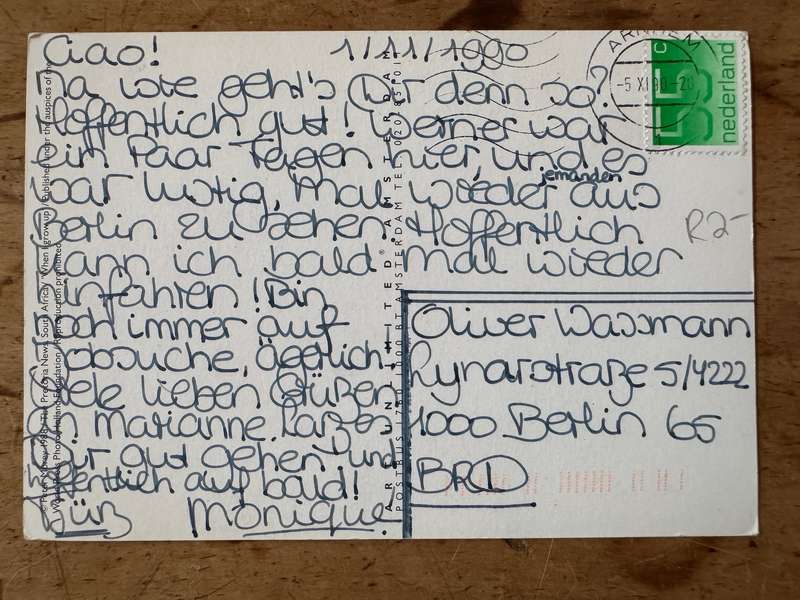 Ciao! 1/11/1990
Na wie geht's Dir denn so?
Hoffentlich gut! Werner war
ein Paar Tagen hier und es
war lustig, mal wieder jemanden aus
Berlin zu sehen. Hoffentlich
kann ich bald mal wieder
hinfahren! Bin
noch immer auf
Jobsuche, ärgerlich.
Viele lieben Grüßen
an Marianne, Laßen
Dir gut gehen und
hoffentlich auf bald!
Tüüß Monique
Oliver Wassmann
Lynarstraße 5/4222
1000 Berlin 65
BRD
R2-
ARNHEM
-5 XI 90-20
55 c
nederland
ART UNLIMITED® AMSTERDAM
POSTBUS 1000 BT AMSTERDAM TEL 020
The Pretoria News, South Africa / "When I grow up" / Published under the auspices of the
World Press Photo Holland Foundation / Reproduction prohibited